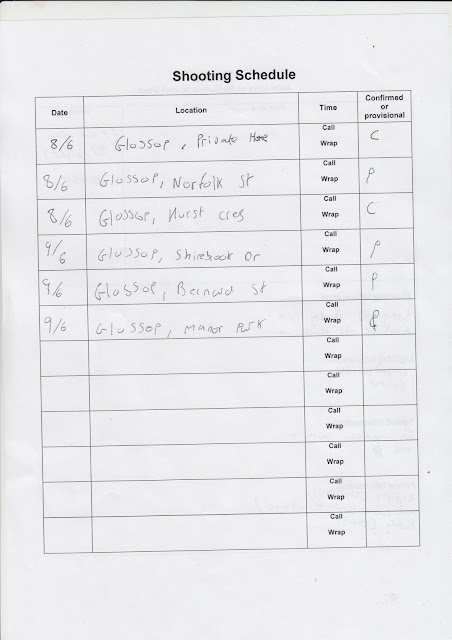 Shooting Schedule
Date Location Time Confirmed or provisional
8/6 Glossop, Private Home Call Wrap C
8/6 Glossop, Norfolk St Call Wrap P
8/6 Glossop, Hurst Cres Call Wrap C
9/6 Glossop, Shirebrook Dr Call Wrap P
9/6 Glossop, Bernard St Call Wrap P
9/6 Glossop, Manor Park Call Wrap
Call Wrap
Call Wrap
Call Wrap
Call Wrap
Call Wrap
Call Wrap